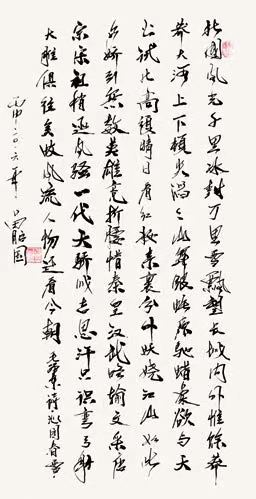 北國風光千里冰封万里雪飄望长城内外惟餘莽
莽大河上下頓失滔々山舞銀蛇原馳蜡象欲与天
公試比高須晴日看红妆素裹分外妖娆江山如此
多娇引無数英雄竞折腰惜秦皇汉武略输文采唐
宗宋祖稍逊風骚一代天骄成吉思汗只識弯弓射
大雕俱往矣数風流人物还看今朝 毛澤東詩沁園春雪
丙申二〇一六年